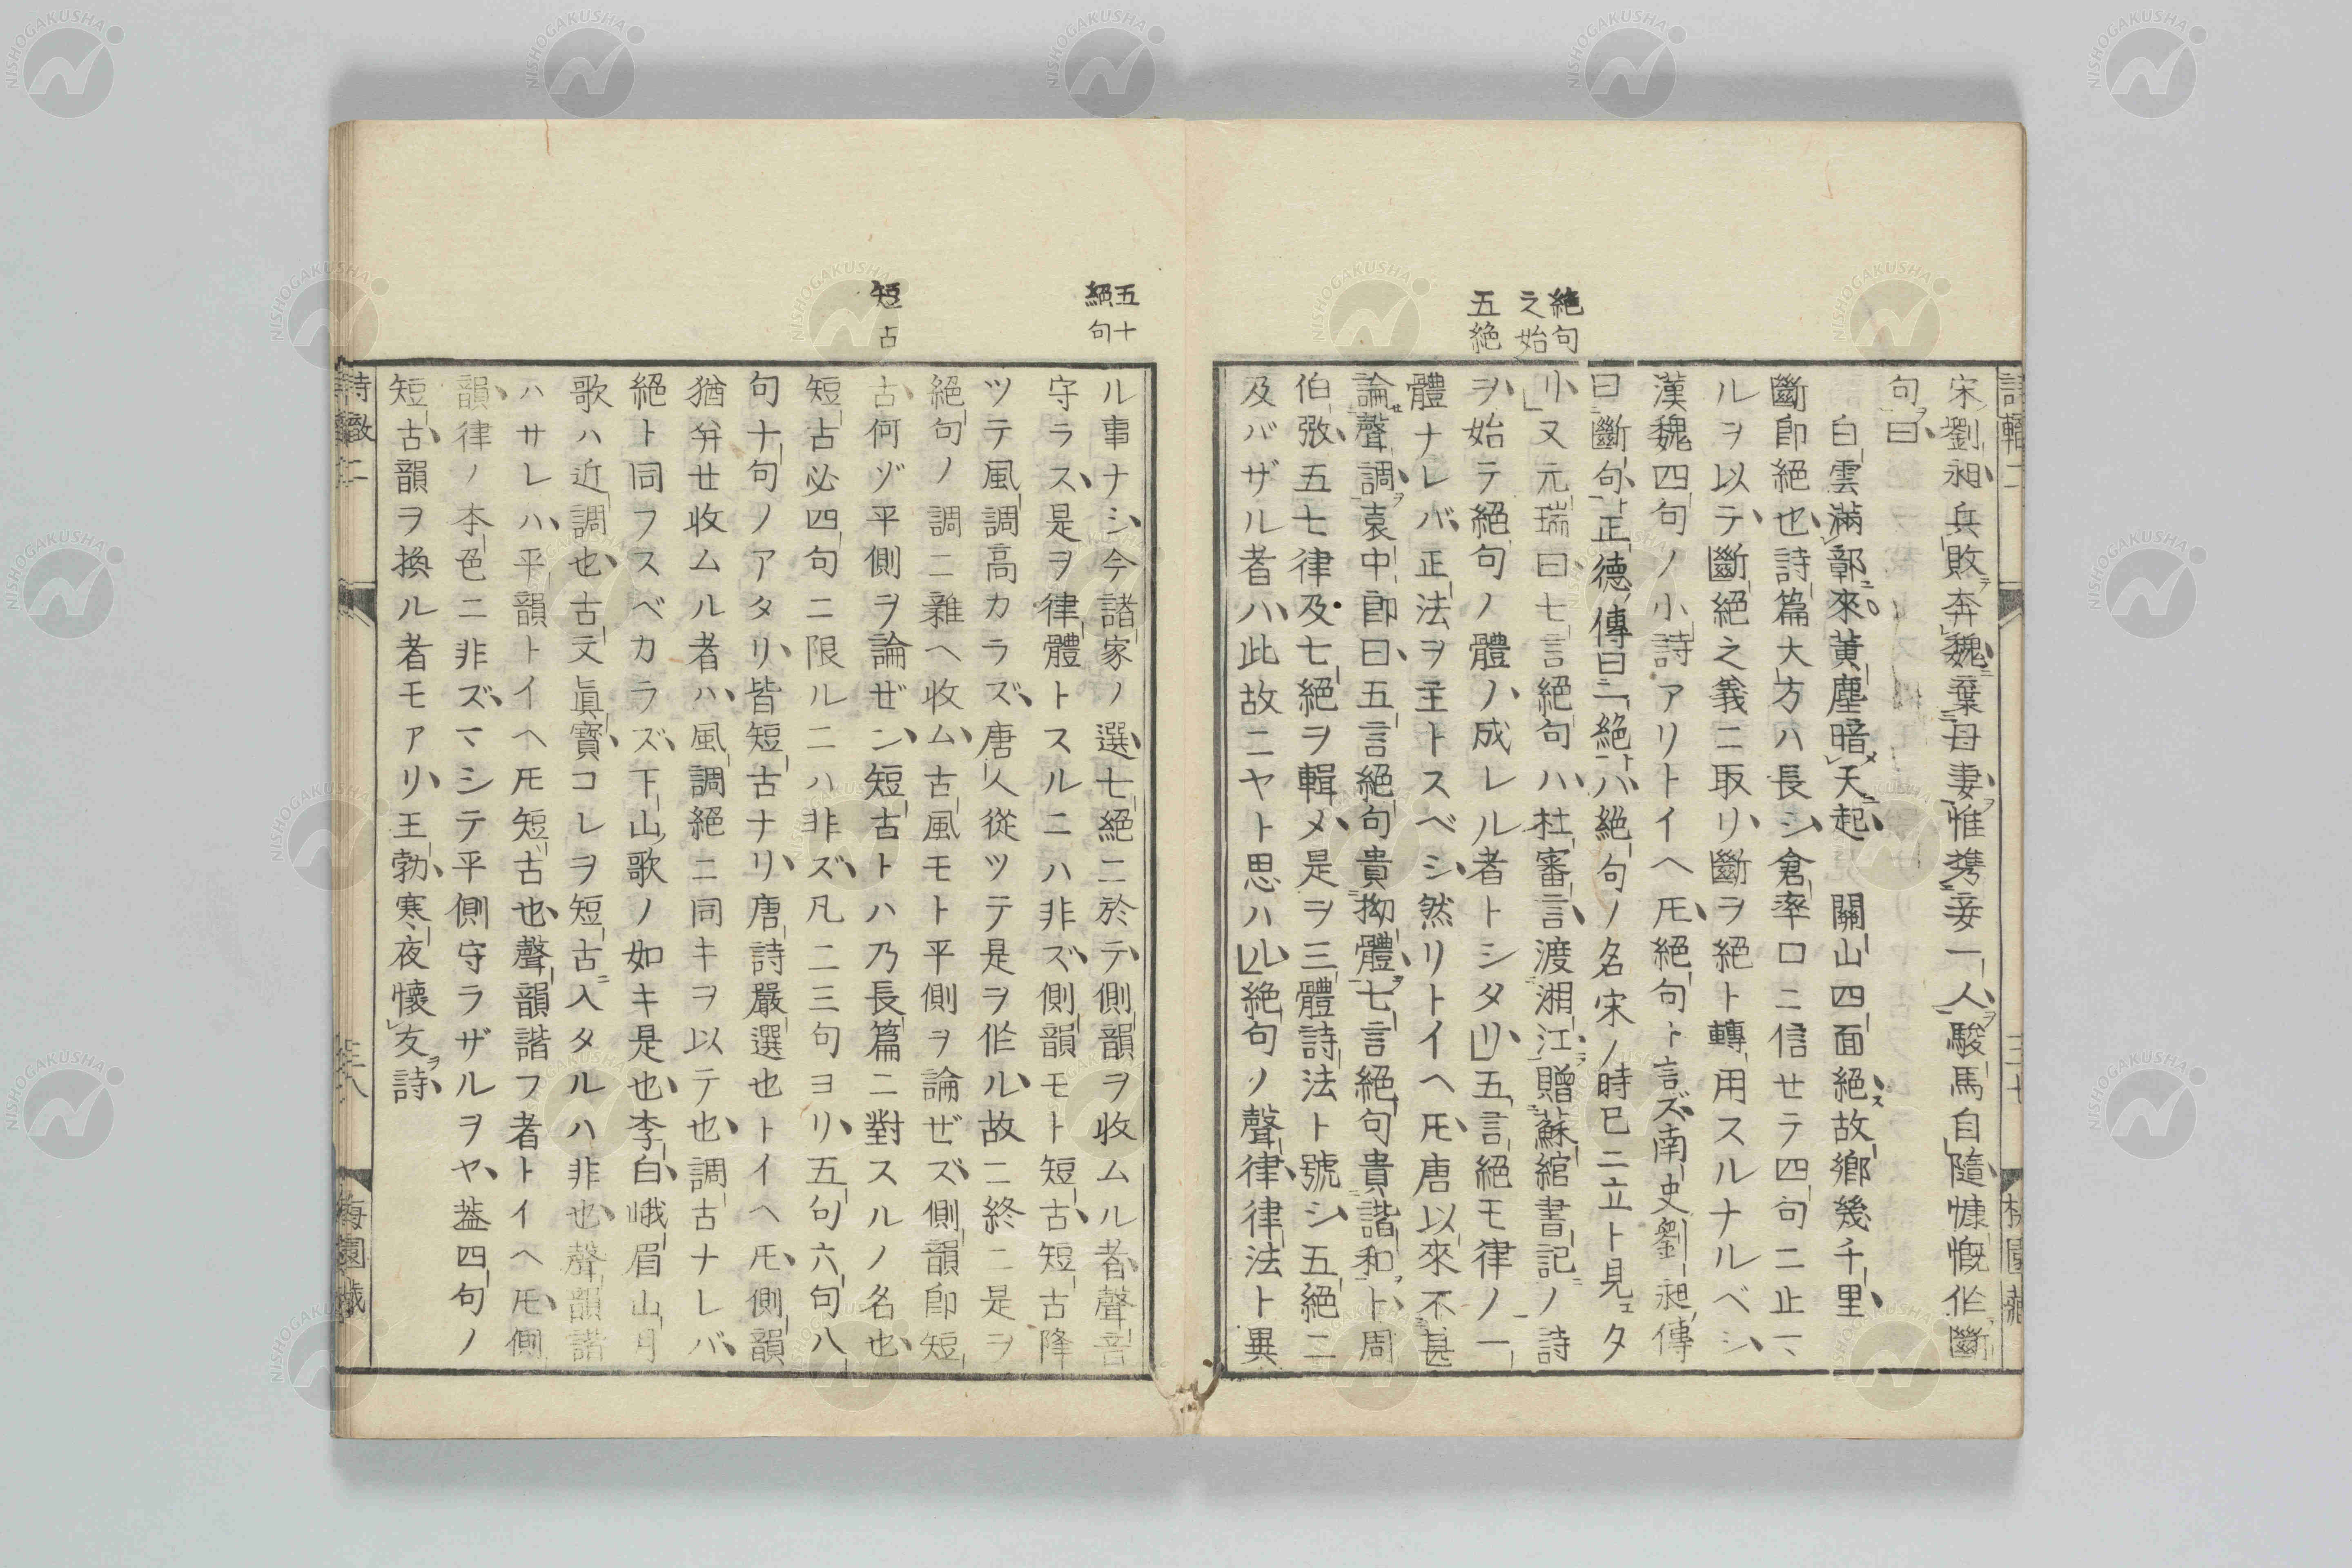 絶句
之始
五絶
宋劉昶兵敗テ奔魏ニ棄母妻ヲ惟携妾一人ヲ駿馬自隨慷慨作斷
句ヲ曰
白雲滿鄣ニ來黄塵暗メ天ニ起 關山四面絶ス故鄉幾千里
斷即絶也詩篇大方ハ長シ倉率口ニ信セテ四句ニ止マ
ルヲ以テ斷絶之義ニ取リ斷ヲ絶ト轉用スルナルベシ
漢魏四句ノ小詩アリトイヘ𪜈絶句ト言ズ南史劉昶傳
曰斷句ト正德ノ傳曰二絶トハ絶句ノ名宋ノ時已ニ立ト見エタ
リ又元瑞曰七言絶句ハ杜審言渡湘江ヲ贈蘇綰書記ニノ詩
ヲ始テ絶句ノ體ノ成レル者トシタリ五言絶モ律ノ一
體ナレバ正法ヲ主トスベシ然リトイヘ𪜈唐以來不甚
論セ聲調ヲ袁中郎曰五言絶句貴拗體ヲ七言絶句貴諧和ヲト周
伯弜五七律及七絶ヲ輯メ是ヲ三體詩法ト號シ五絶ニ
及バザル者ハ此故ニヤト思ハル絶句ノ聲律律法ト異
五十
絕句
短古
ル事ナシ今諸家ノ選七絕ニ於テ側韻ヲ收ムル者聲音
守ラス是ヲ律體トスルニハ非ズ側韻モト短古短古降
ツテ風調高カラズ唐人從ツテ是ヲ作ル故ニ終ニ是ヲ
絕句ノ調ニ雜ヘ收ム古風モト平側ヲ論ぜズ側韻即短
古何ヅ平側ヲ論ぜン短古トハ乃長篇ニ對スルノ名也
短古必四句ニ限ルニハ非ズ凡二三句ヨリ五句六句八
句十句ノアタリ皆短古ナリ唐詩嚴選也トイヘ𪜈側韻
猶分廿收ムル者ハ風調絕ニ同キヲ以テ也調古ナレバ
絕ト同フスベカラズ下山歌ノ如キ是也李白峨眉山月
歌ハ近調也古文眞寶コレヲ短古ニ入タルハ非也聲韻諧
ハサレハ平韻トイヘ𪜈短古也聲韻諧フ者トイヘ𪜈側
韻律ノ本色ニ非ズマシテ平側守ラザルヲヤ蓋四句ノ
短古韻ヲ換ル者モアリ王勃寒夜懷友ヲ詩
詩轍 二
梅園藏